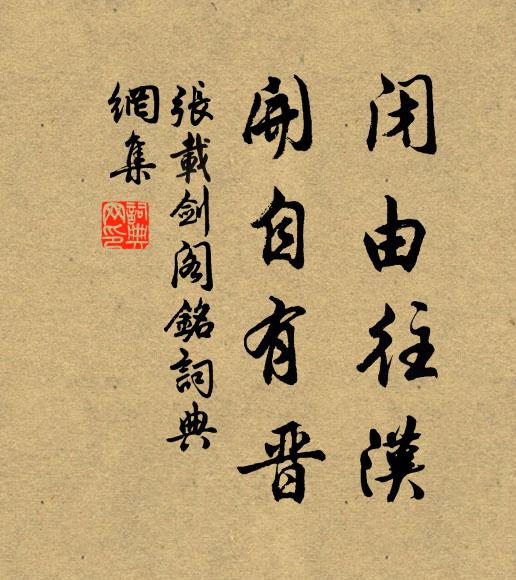 闭由往漢
開自有晋
張載剑阁銘詞典
網集
詞典
网印